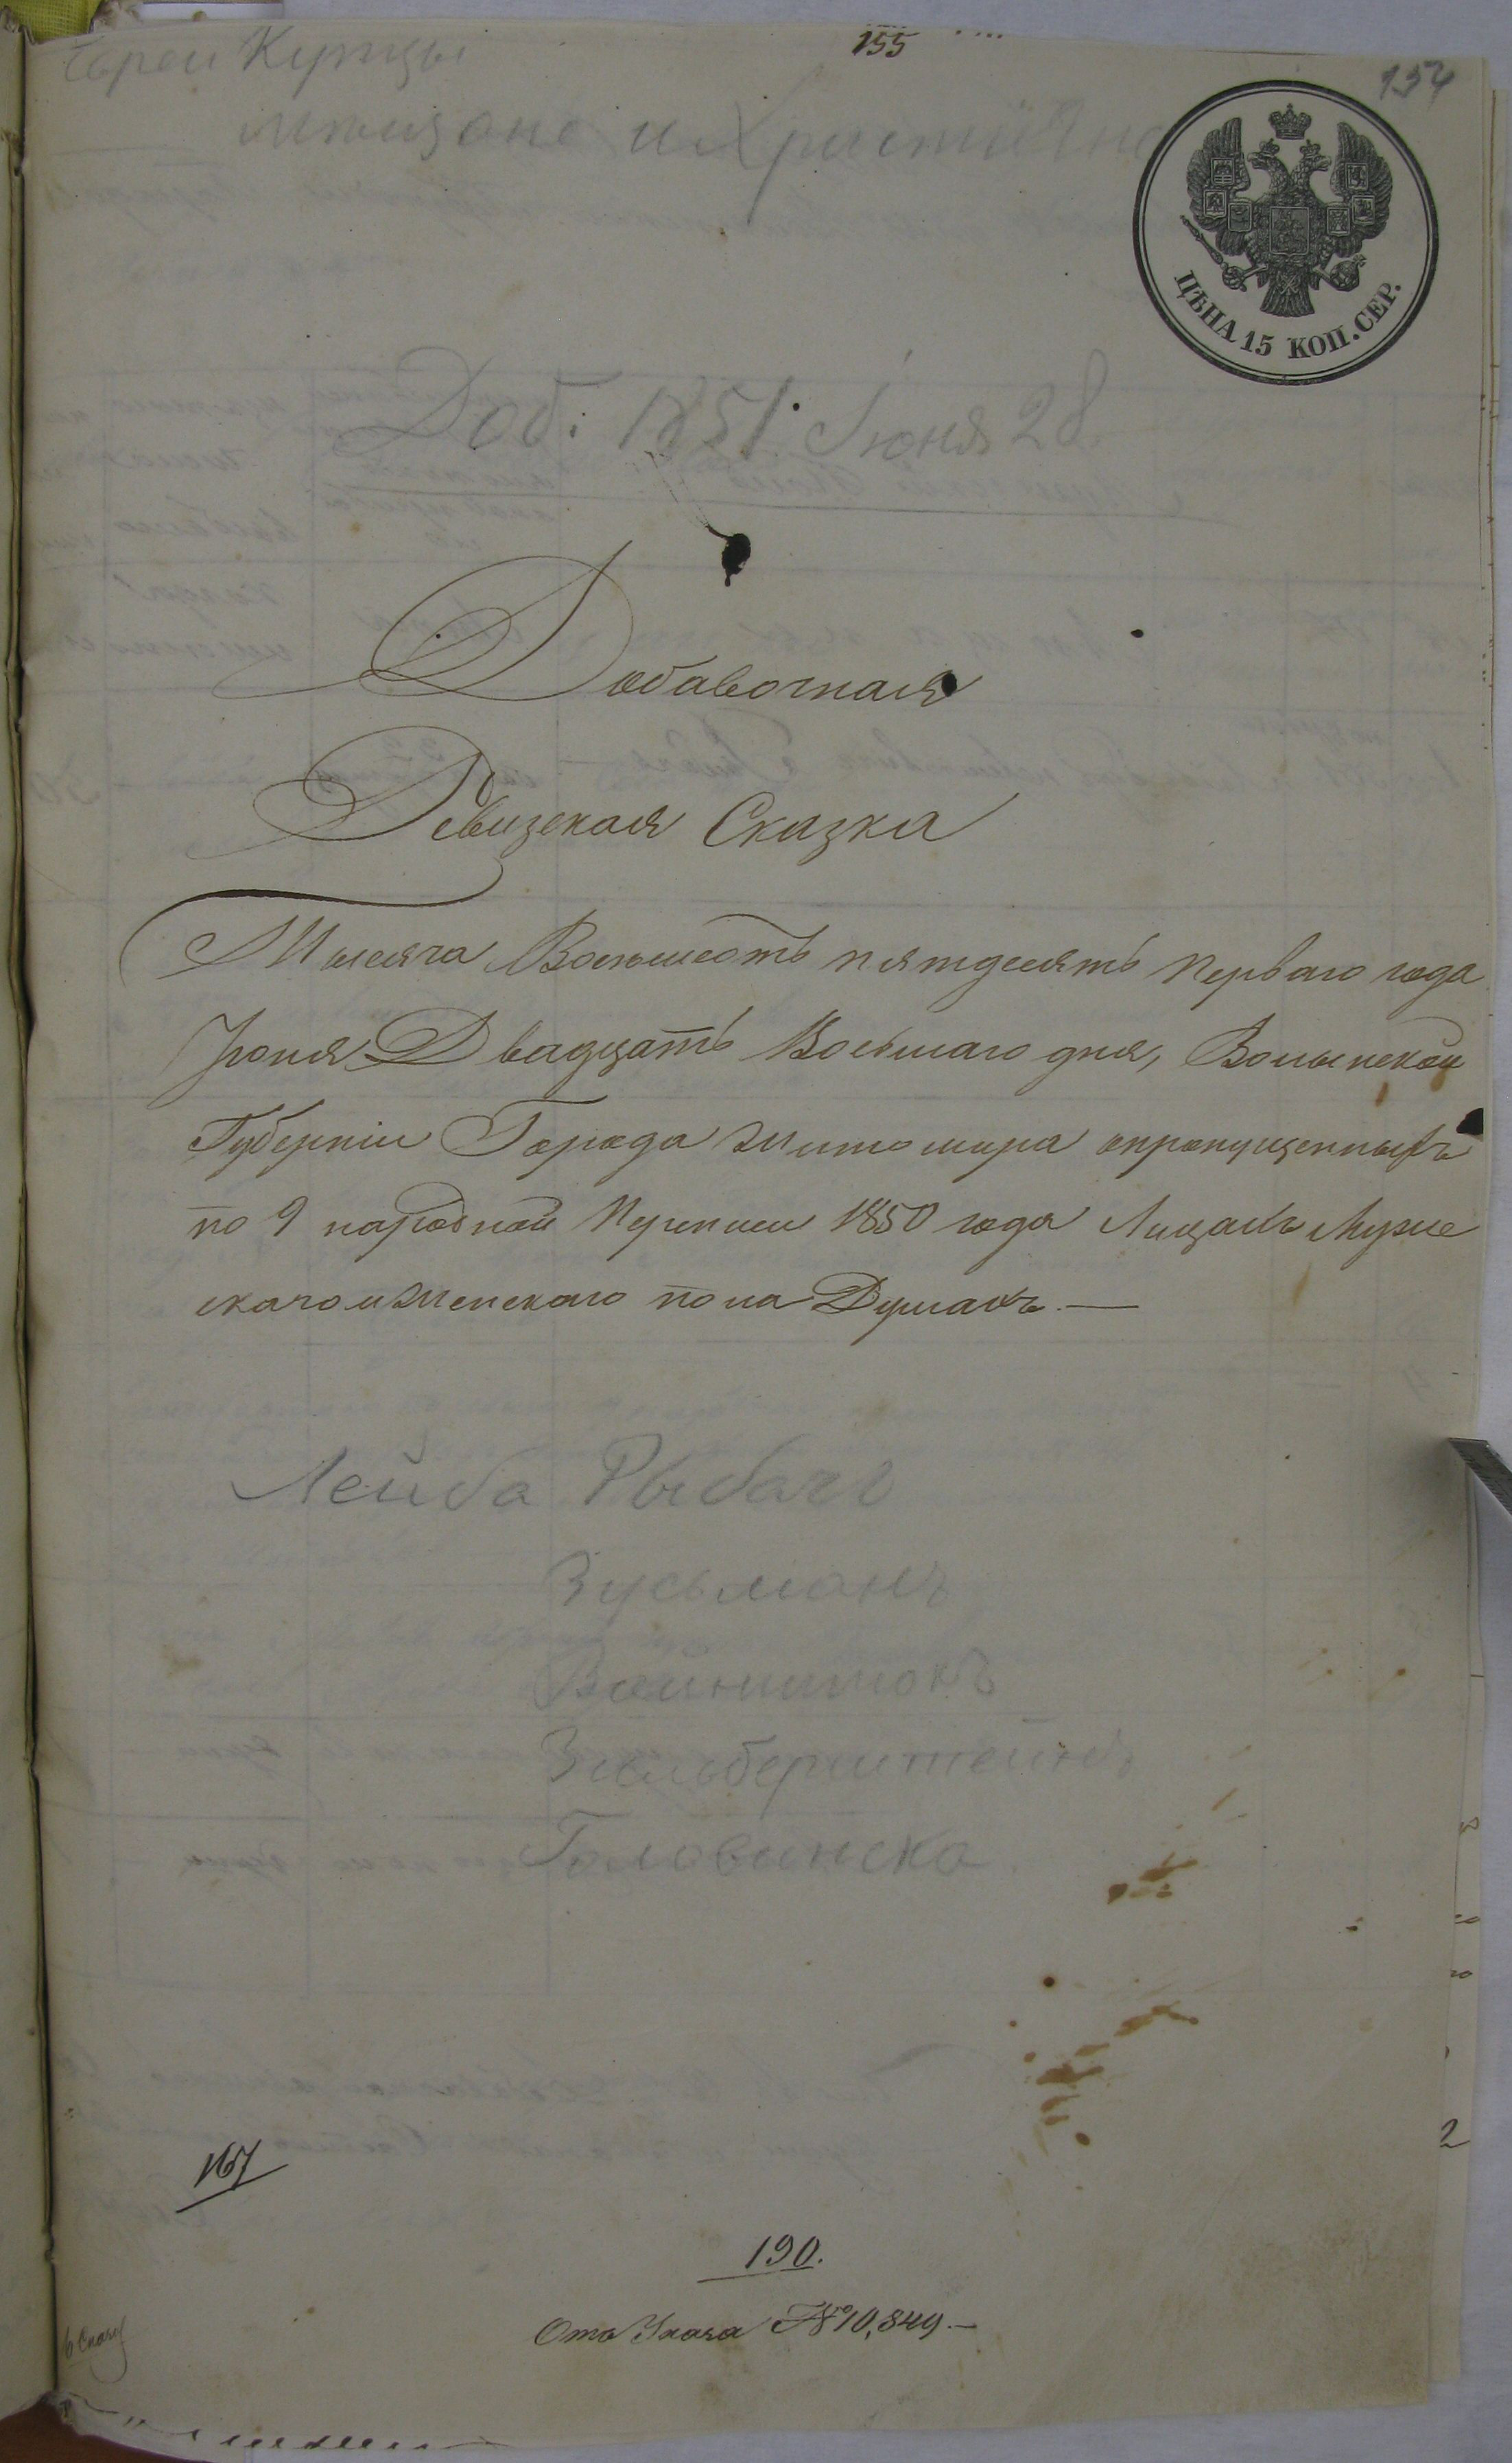 Евреи Купцы
155
154
мещане и Христиане
ЦѢНА 15 КОП. СЕР.
Доб: 1851: Іюня 28
Добавочная
Ревизская Сказка
Тысяча Восемьсотъ пятдесятъ перваго года
Іюня Двадцать Восьмаго дня, Волынской
Губерніи Города Житомира опропущенныхъ
по 9 народной Переписи 1850 года Лицахъ Муже
скаго и Женскаго пола Душахъ. —
Лейба Рыбачъ
Зусьманъ
Вайнштокъ
Зильберштейнъ
Головинска
167
190.
№ 10,849. —
2